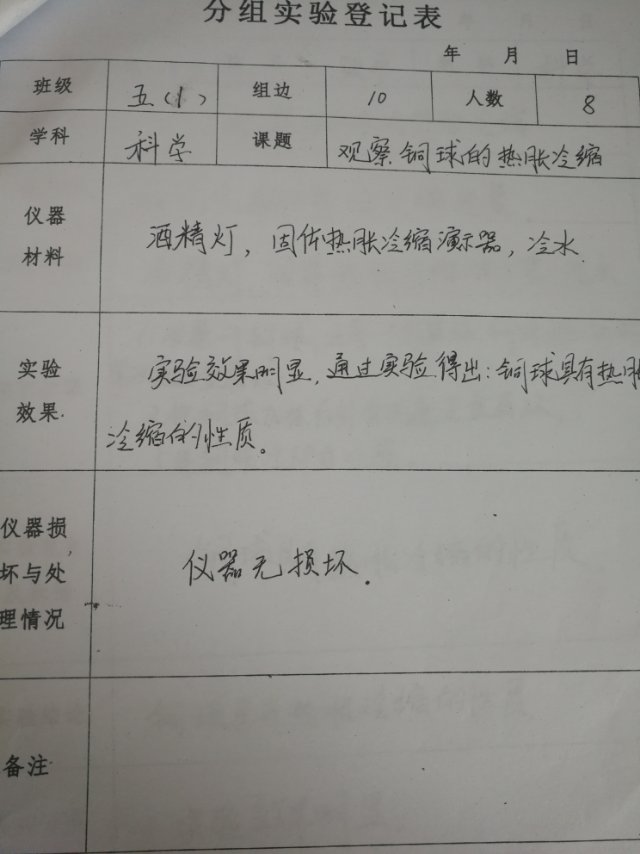 分组实验登记表
年 月 日
班级 五(1) 组边 10 人数 8
学科 科学 课题 观察铜球的热胀冷缩
仪器
材料
酒精灯，固体热胀冷缩演示器，冷水
实验
效果.
实验效果明显，通过实验得出：铜球具有热胀
冷缩的性质。
仪器损
坏与处
理情况
仪器无损坏.
备注